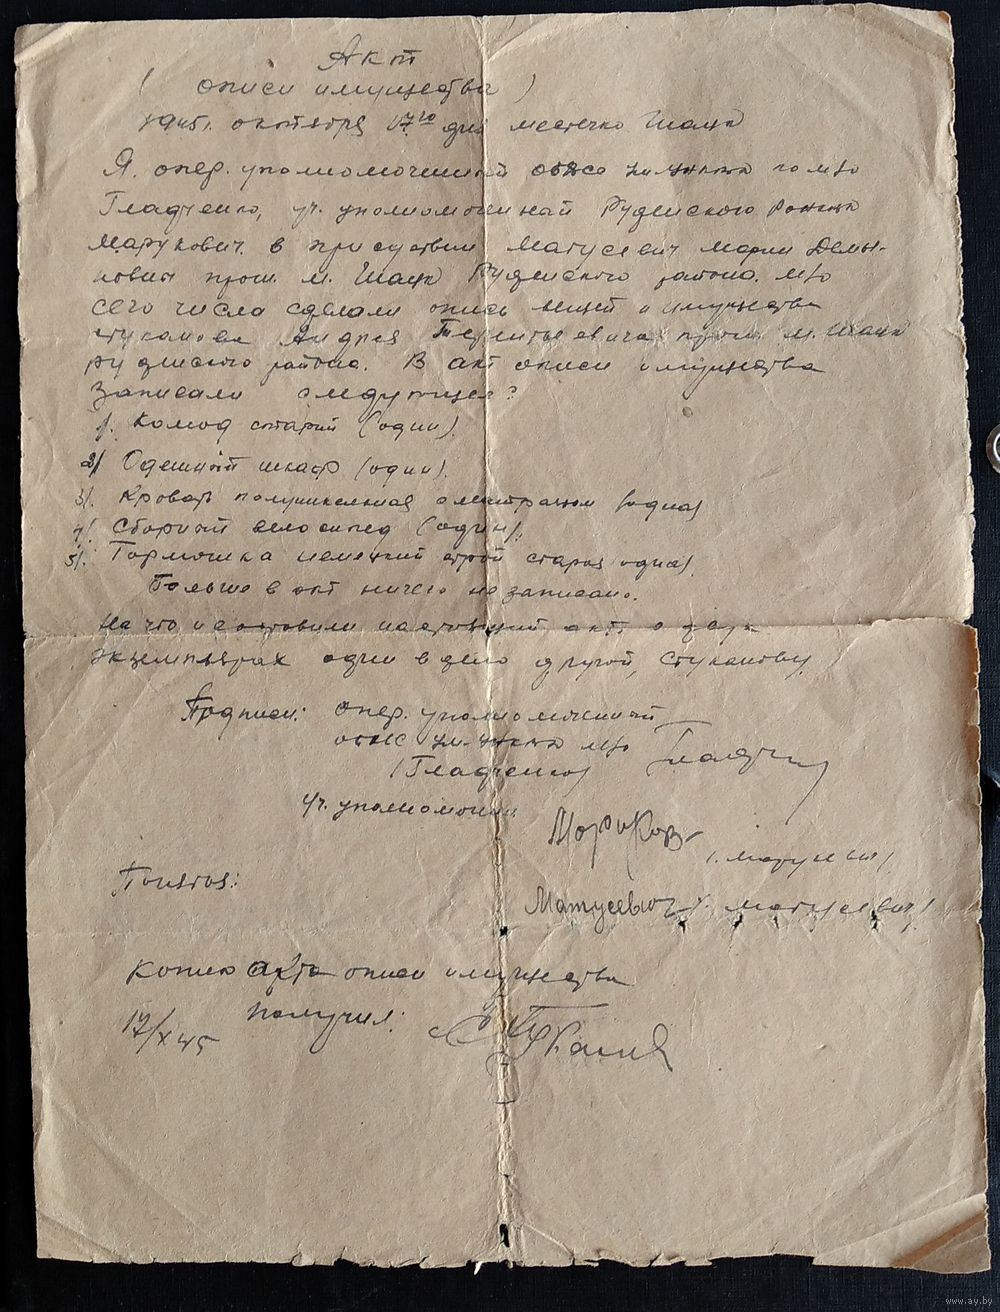 Акт
( описи имущества )
1945г. октября 17го дня местечко Шацк
Я. опер. уполномоченный
Гладченко, уч. уполномоченый Руденского
Марукович. в присутствии Матусевич Марии Демья-
новны прож. м. Шацк Руденского района. м/о
сего числа сделали опись вещей и имущества
Стуканова Андрея Терентьевича прож. м. Шацк
Руденского района. В акт описи имущества
записали следующее:
1/. Комод старый (один).
2/ Одежный шкаф (один).
3/. Кровать полуникельная с матрацом (одна)
4/. Сборный велосипед (один).
5/. Гормошка немецкий строй старая (одна).
Больше в акт ничего не записано.
На что и составили настоящий акт в двух
экземплярах один в дело другой, Стуканову.
Подписи: Опер. уполномоченный
м/о
(Гладченко)
уч. уполномочен.
Понятоя:
Матусевич (Матусевич)
Копию акта описи имущества
получил:
17/X 45
www.ay.by